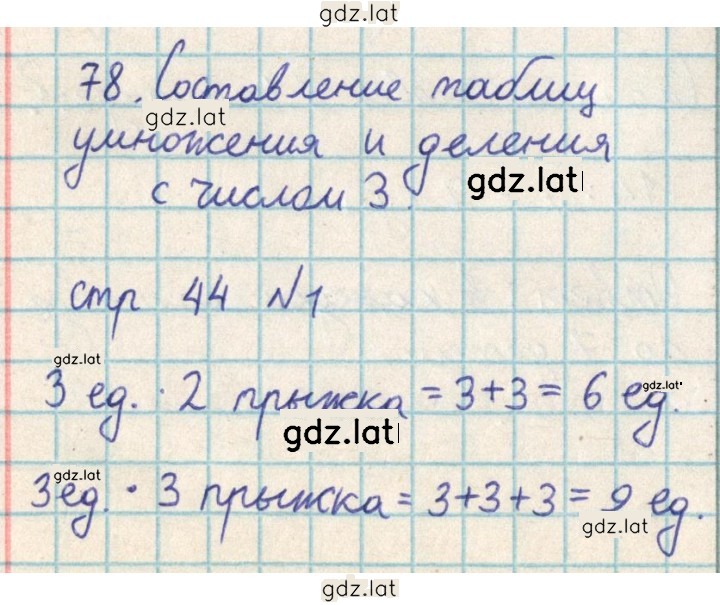 gdz.lat
78. Составление таблиц
gdz.lat
умножения и деления
gdz.lat
с числом 3.
стр 44 №1
gdz.lat
gdz.lat
3 ед. · 2 прыжка = 3+3 = 6 ед.
gdz.lat
gdz.lat
3 ед. · 3 прыжка = 3+3+3 = 9 ед.
gdz.lat
gdz.lat